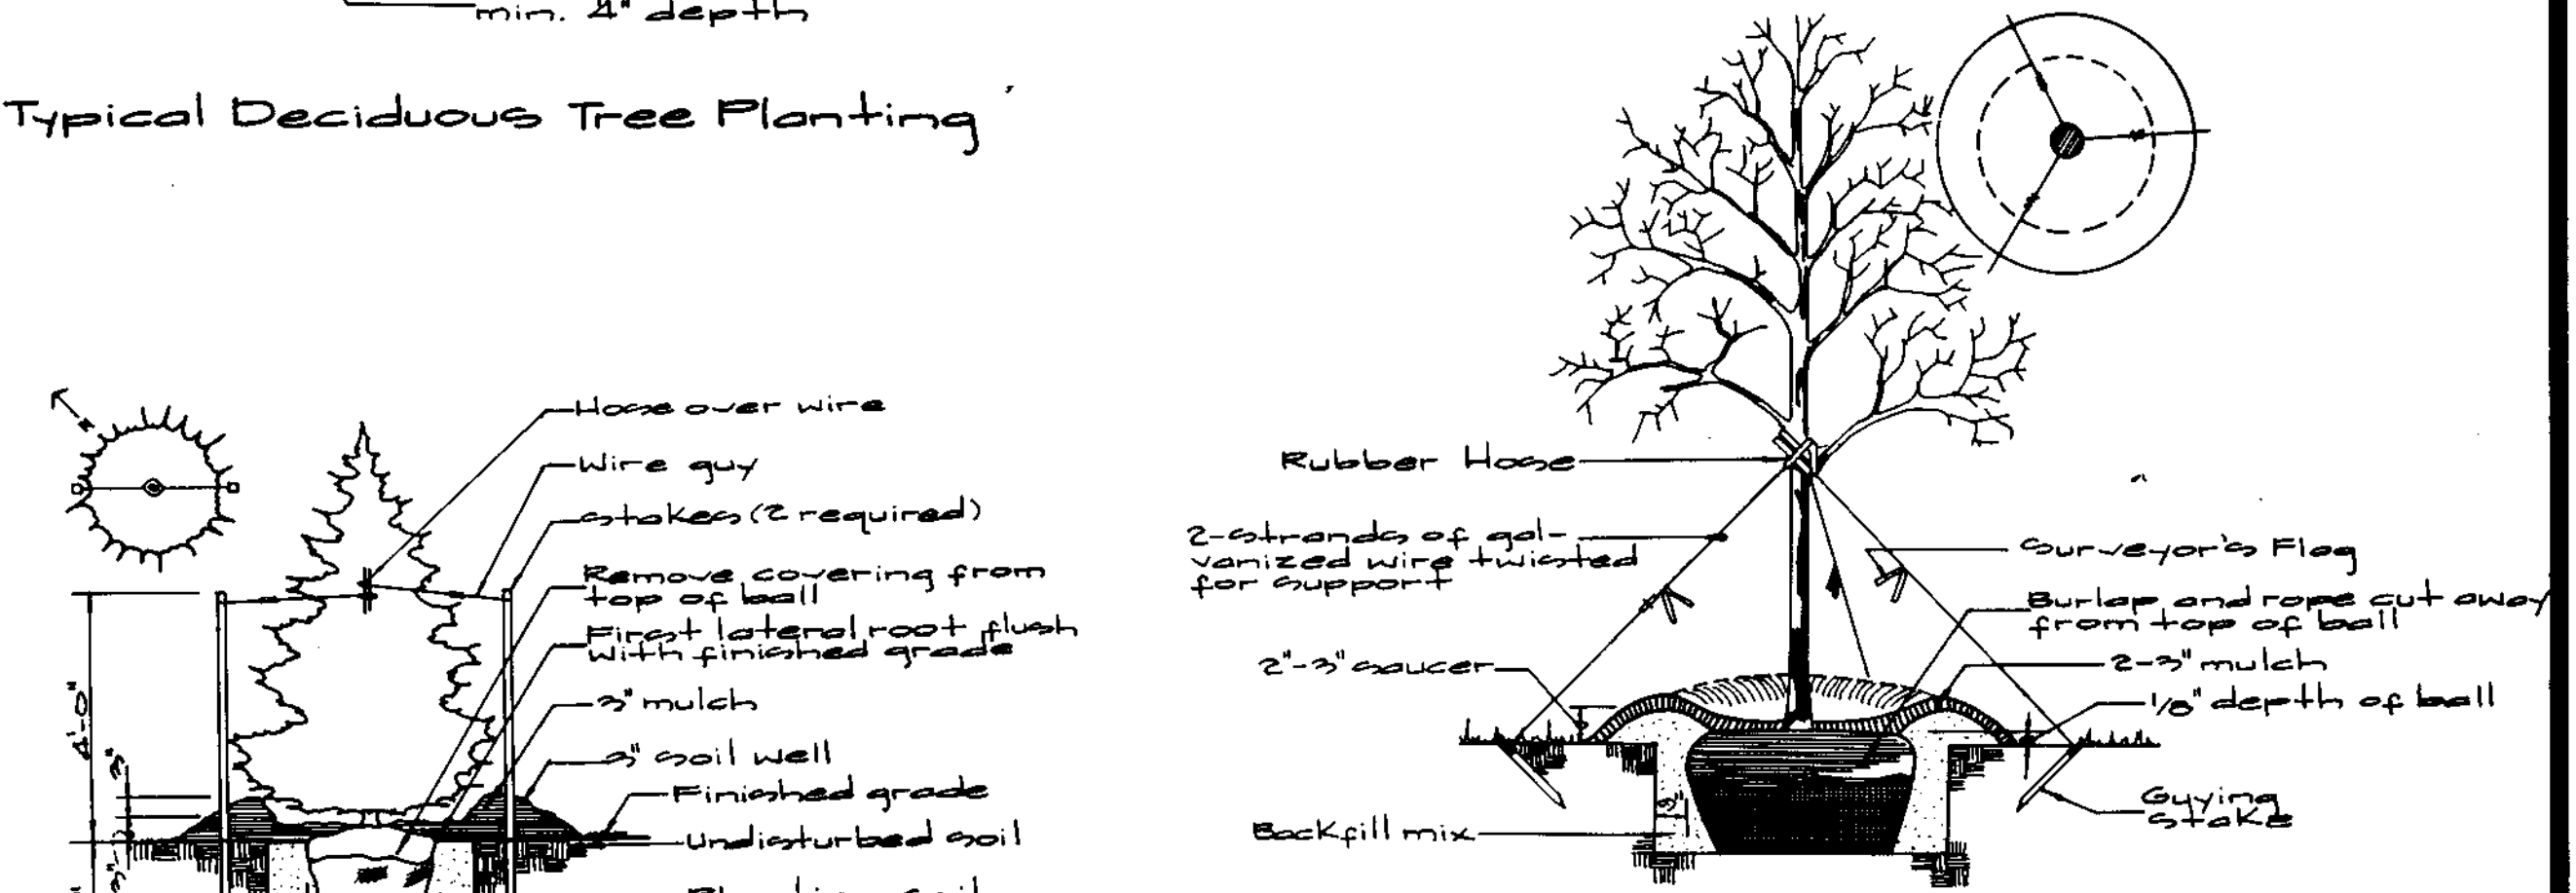 min. 4" depth
Typical Deciduous Tree Planting
Hose over wire
Wire guy
stakes (2 required)
Remove covering from
top of ball
First lateral root flush
with finished grade
3" mulch
3" soil well
Finished grade
Undisturbed soil
4'-0"
3"
Rubber Hose
2-strands of gal-
vanized wire twisted
for support
2"-3" saucer
Backfill mix
9"
Surveyor's Flag
Burlap and rope cut away
from top of ball
2-3" mulch
1/8" depth of ball
Guying
stake